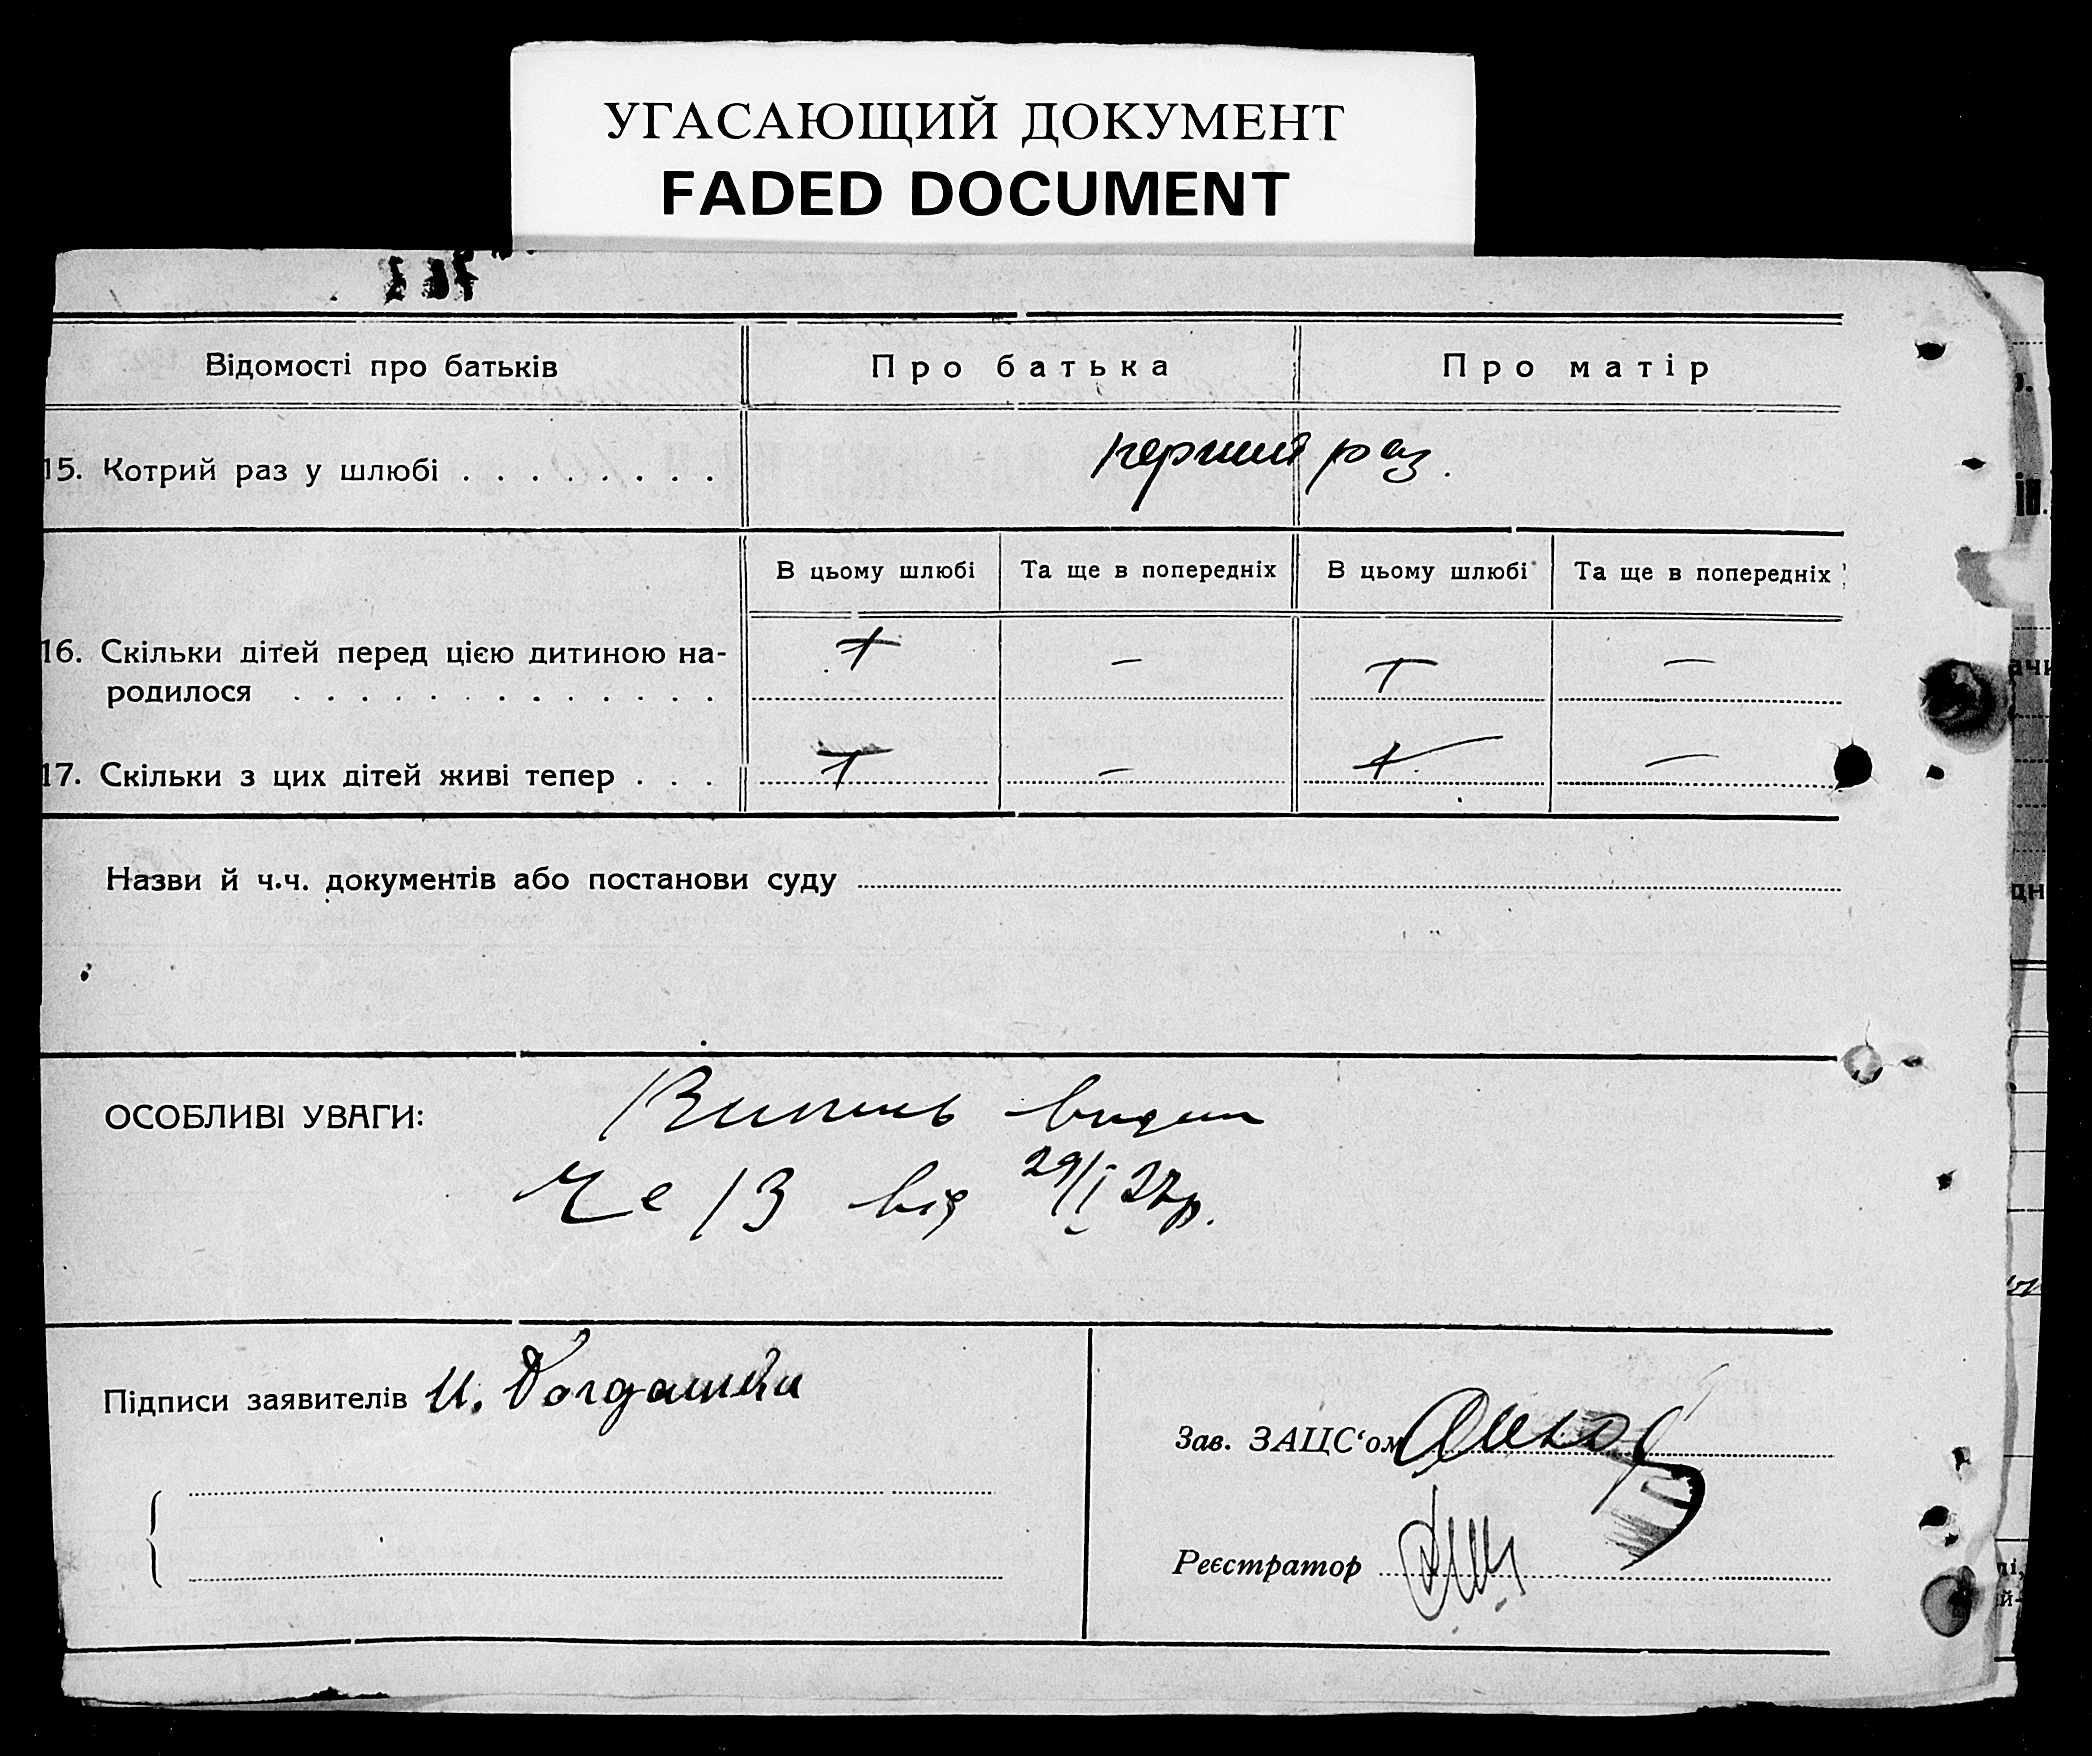 УГАСАЮЩИЙ ДОКУМЕНТ
FADED DOCUMENT
Відомості про батьків
Про батька
Про матір
15. Котрий раз у шлюбі . . . . . . . .
перший раз.
В цьому шлюбі
Та ще в попередніх
В цьому шлюбі
Та ще в попередніх
16. Скільки дітей перед цією дитиною на-
родилося . . . . . . . . . . . . .
+ — + —
17. Скільки з цих дітей живі тепер . . .
+ — + —
Назви й ч.ч. документів або постанови суду
ОСОБЛИВІ УВАГИ:
Випись видан
13 від 29/I 27р.
Підписи заявителів И.
Зав. ЗАЦС‘ом
Реєстратор